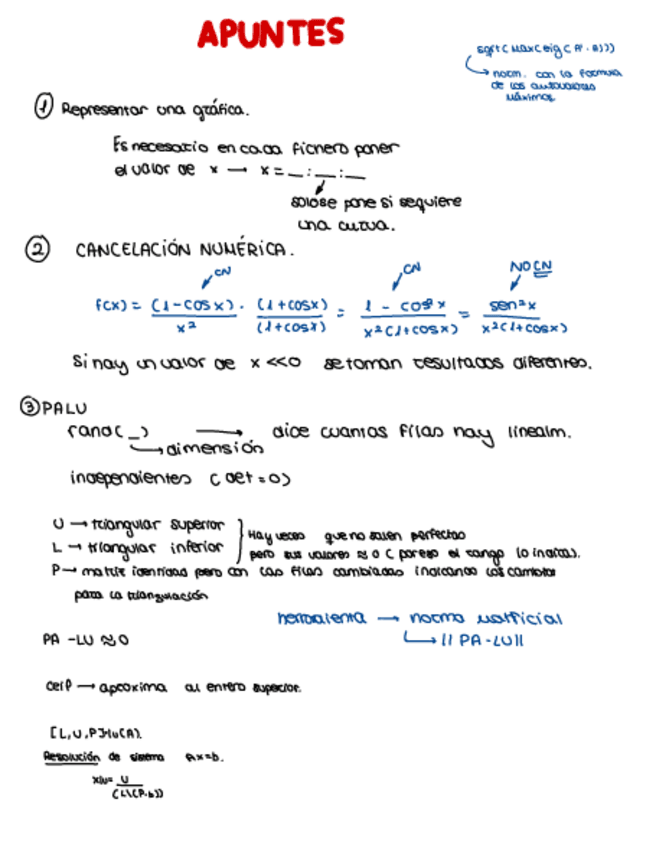 APUNTES
sqrt(max(eig(A'·A)))
norm. con la formula
de los autovalores
máximos
① Representar una gráfica.
Es necesario en cada fichero poner
el valor de x → x = _ : _ : _
solo se pone si se quiere
una curva.
② CANCELACIÓN NUMÉRICA.
CN CN NO CN
f(x) = (1-cosx)/x² · (1+cosx)/(1+cosx) = 1 - cos²x/x²(1+cosx) = sen²x/x²(1+cosx)
Si hay un valor de x <<0 se toman resultados diferentes.
③ PALU
rand(_) → dice cuantas filas hay linealm.
→ dimensión
independientes (det=0)
U → triangular superior
L → triangular inferior
Hay veces que no salen perfectas
pero sus valores ≈ 0 (por eso el rango lo indica).
P → matriz identidad pero con las filas cambiadas indicando los cambios
para la triangulación
herramienta → norma matricial
PA -LU ≈ 0
→ || PA-LU||
ceil → aproxima al entero superior.
[L,U,P]=lu(A).
Resolución de sistema Ax=b.
xlu= U
(L\(P·b))